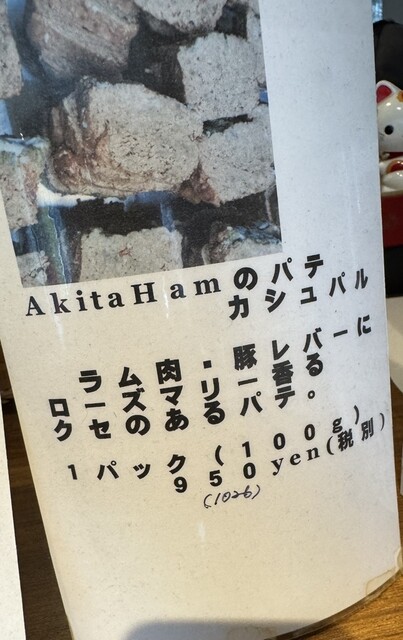 AkitaHamのパテ
カシュパル
ラム肉・豚レバーに
ローズマリー香る
クセのあるパテ。
1パック(100g)
950yen(税別)
(1026)